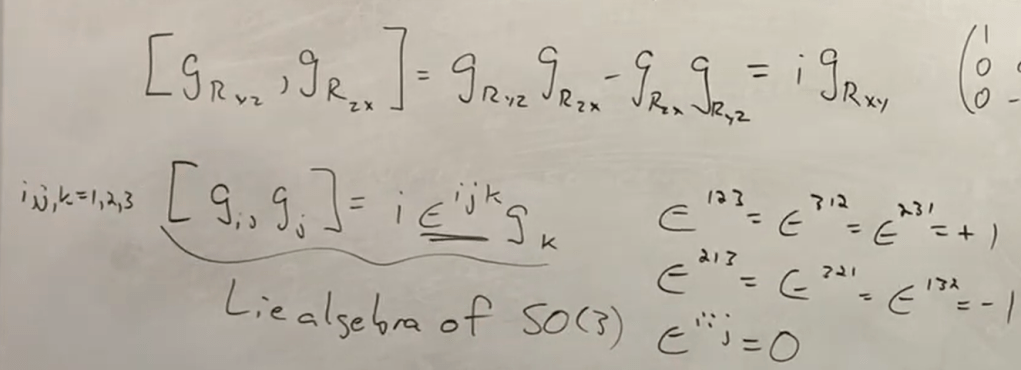 [g_{R_{yz}}, g_{R_{zx}}] = g_{R_{yz}} g_{R_{zx}} - g_{R_{zx}} g_{R_{yz}} = i g_{R_{xy}} ( 1 0 0 -
i,j,k=1,2,3 [g_i, g_j] = i ϵ^{ijk} g_k
ϵ^{123} = ϵ^{312} = ϵ^{231} = +1
ϵ^{213} = ϵ^{321} = ϵ^{132} = -1
Lie algebra of SO(3)
ϵ^{iij} = 0